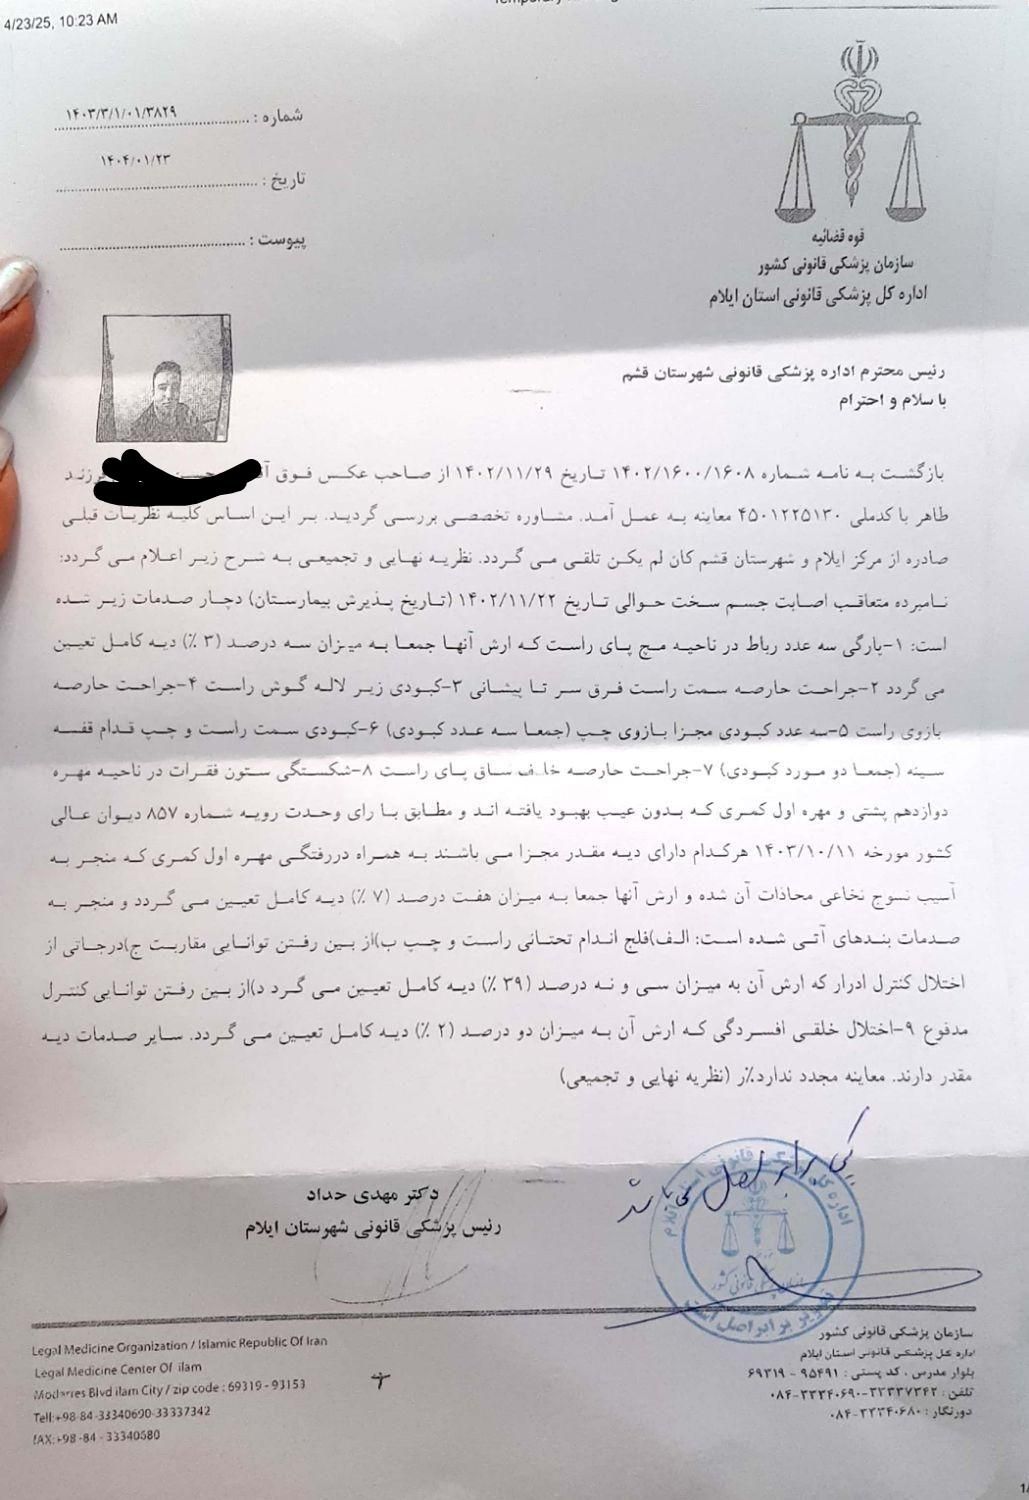 4/23/25, 10:23 AM
شماره : ۱۴۰۳/۳/۱/۰۱/۳۸۲۹
تاریخ : ۱۴۰۴/۰۱/۲۳
پیوست :
قوه قضائیه
سازمان پزشکی قانونی کشور
اداره کل پزشکی قانونی استان ایلام
رئیس محترم اداره پزشکی قانونی شهرستان قشم
با سلام و احترام
بازگشت به نامه شماره ۱۴۰۲/۱۶۰۰/۱۶۰۸ تاریخ ۱۴۰۲/۱۱/۲۹ از صاحب عکس فوق
طاهر با کدملی ۴۵۰۱۲۲۵۱۳۰ معاینه به عمل آمد. مشاوره تخصصی بررسی گردید. بر این اساس کلیه نظریات قبلی
صادره از مرکز ایلام و شهرستان قشم کان لم یکن تلقی می گردد. نظریه نهایی و تجمیعی به شرح زیر اعلام می گردد:
نامبرده متعاقب اصابت جسم سخت حوالی تاریخ ۱۴۰۲/۱۱/۲۲ (تاریخ پذیرش بیمارستان) دچار صدمات زیر شده
است: ۱-پارگی سه عدد رباط در ناحیه مچ پای راست که ارش آنها جمعا به میزان سه درصد (۳ ٪) دیه کامل تعیین
می گردد ۲-جراحت حارصه سمت راست فرق سر تا پیشانی ۳-کبودی زیر لاله گوش راست ۴-جراحت حارصه
بازوی راست ۵-سه عدد کبودی مجزا بازوی چپ (جمعا سه عدد کبودی) ۶-کبودی سمت راست و چپ قدام قفسه
سینه (جمعا دو مورد کبودی) ۷-جراحت حارصه خلف ساق پای راست ۸-شکستگی ستون فقرات در ناحیه مهره
دوازدهم پشتی و مهره اول کمری که بدون عیب بهبود یافته اند و مطابق با رای وحدت رویه شماره ۸۵۷ دیوان عالی
کشور مورخه ۱۴۰۳/۱۰/۱۱ هرکدام دارای دیه مقدر مجزا می باشند به همراه دررفتگی مهره اول کمری که منجر به
آسیب نسوج نخاعی محاذات آن شده و ارش آنها جمعا به میزان هفت درصد (۷ ٪) دیه کامل تعیین می گردد و منجر به
صدمات بندهای آتی شده است: الف)فلج اندام تحتانی راست و چپ ب)از بین رفتن توانایی مقاربت ج)درجاتی از
اختلال کنترل ادرار که ارش آن به میزان سی و نه درصد (۳۹ ٪) دیه کامل تعیین می گرد د)از بین رفتن توانایی کنترل
مدفوع ۹-اختلال خلقی افسردگی که ارش آن به میزان دو درصد (۲ ٪) دیه کامل تعیین می گردد. سایر صدمات دیه
مقدر دارند. معاینه مجدد ندارد٪ر (نظریه نهایی و تجمیعی)
کپی برابر اصل می باشد
دکتر مهدی حداد
رئیس پزشکی قانونی شهرستان ایلام
سازمان پزشکی قانونی کشور
تصویر برابر اصل است
سازمان پزشکی قانونی کشور
اداره کل پزشکی قانونی استان ایلام
بلوار مدرس ، کد پستی : ۹۵۴۹۱ - ۶۹۳۱۹
تلفن : ۳۳۳۳۷۳۴۲-۰۸۴-۳۳۳۴۰۶۹۰
دورنگار : ۰۸۴-۳۳۳۴۰۶۸۰
Legal Medicine Organization / Islamic Republic Of Iran
Legal Medicine Center Of ilam
Modarres Blvd ilam City / zip code : 69319 - 93153
Tell:+98-84-33340690-33337342
fAX:+98 -84 - 33340680